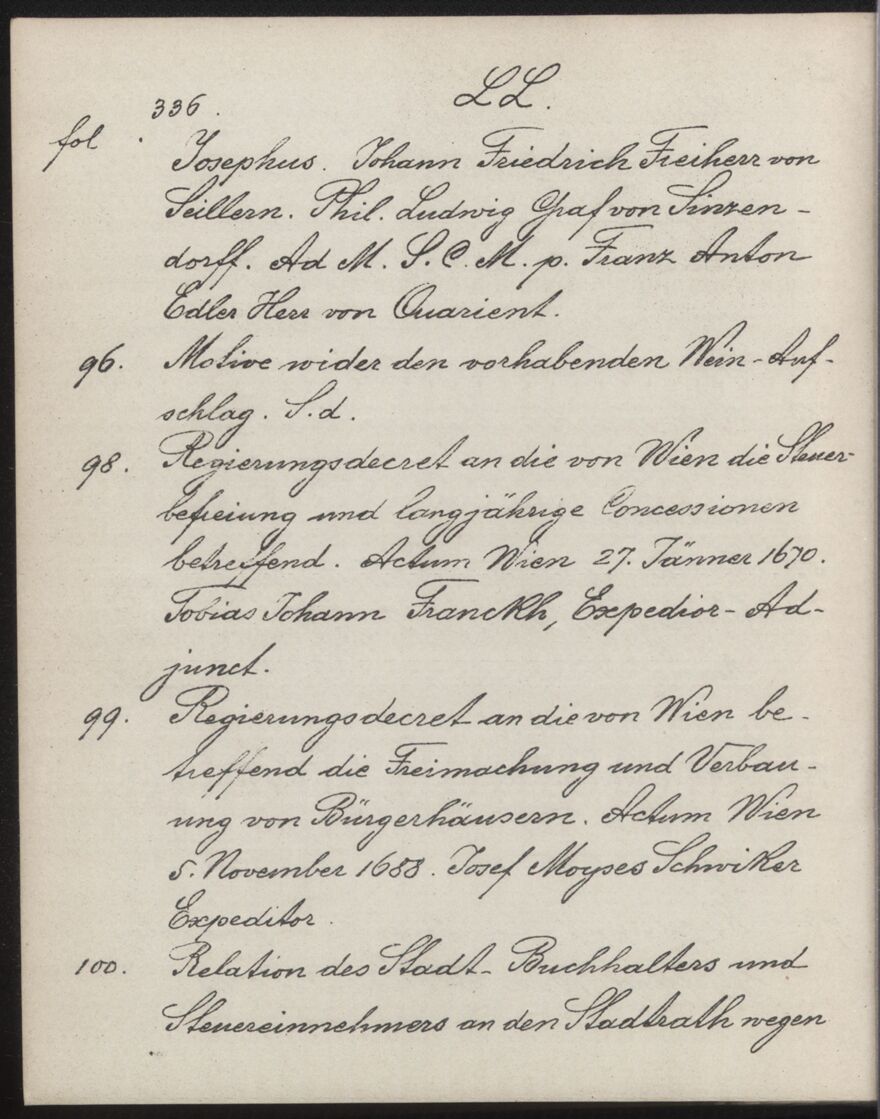 336. LL.
fol. Josephus. Johann Friedrich Freiherr von
Seillern. Phil. Ludwig Graf von Sinzen-
dorff. Ad M. S. C. M. p. Franz Anton
Edler Herr von Quarient.
96. Motive wider den vorhabenden Wein-Auf-
schlag. S. d.
98. Regierungsdecret an die von Wien die Steuer-
befreiung und langjährige Concessionen
betreffend. Actum Wien 27. Jänner 1670.
Tobias Johann Franckh, Expedior-Ad-
junct.
99. Regierungsdecret an die von Wien be-
treffend die Freimachung und Verbau-
ung von Bürgerhäusern. Actum Wien
5. November 1688. Josef Moyses Schwiker
Expeditor.
100. Relation des Stadt-Buchhalters und
Steuereinnehmers an den Stadtrath wegen